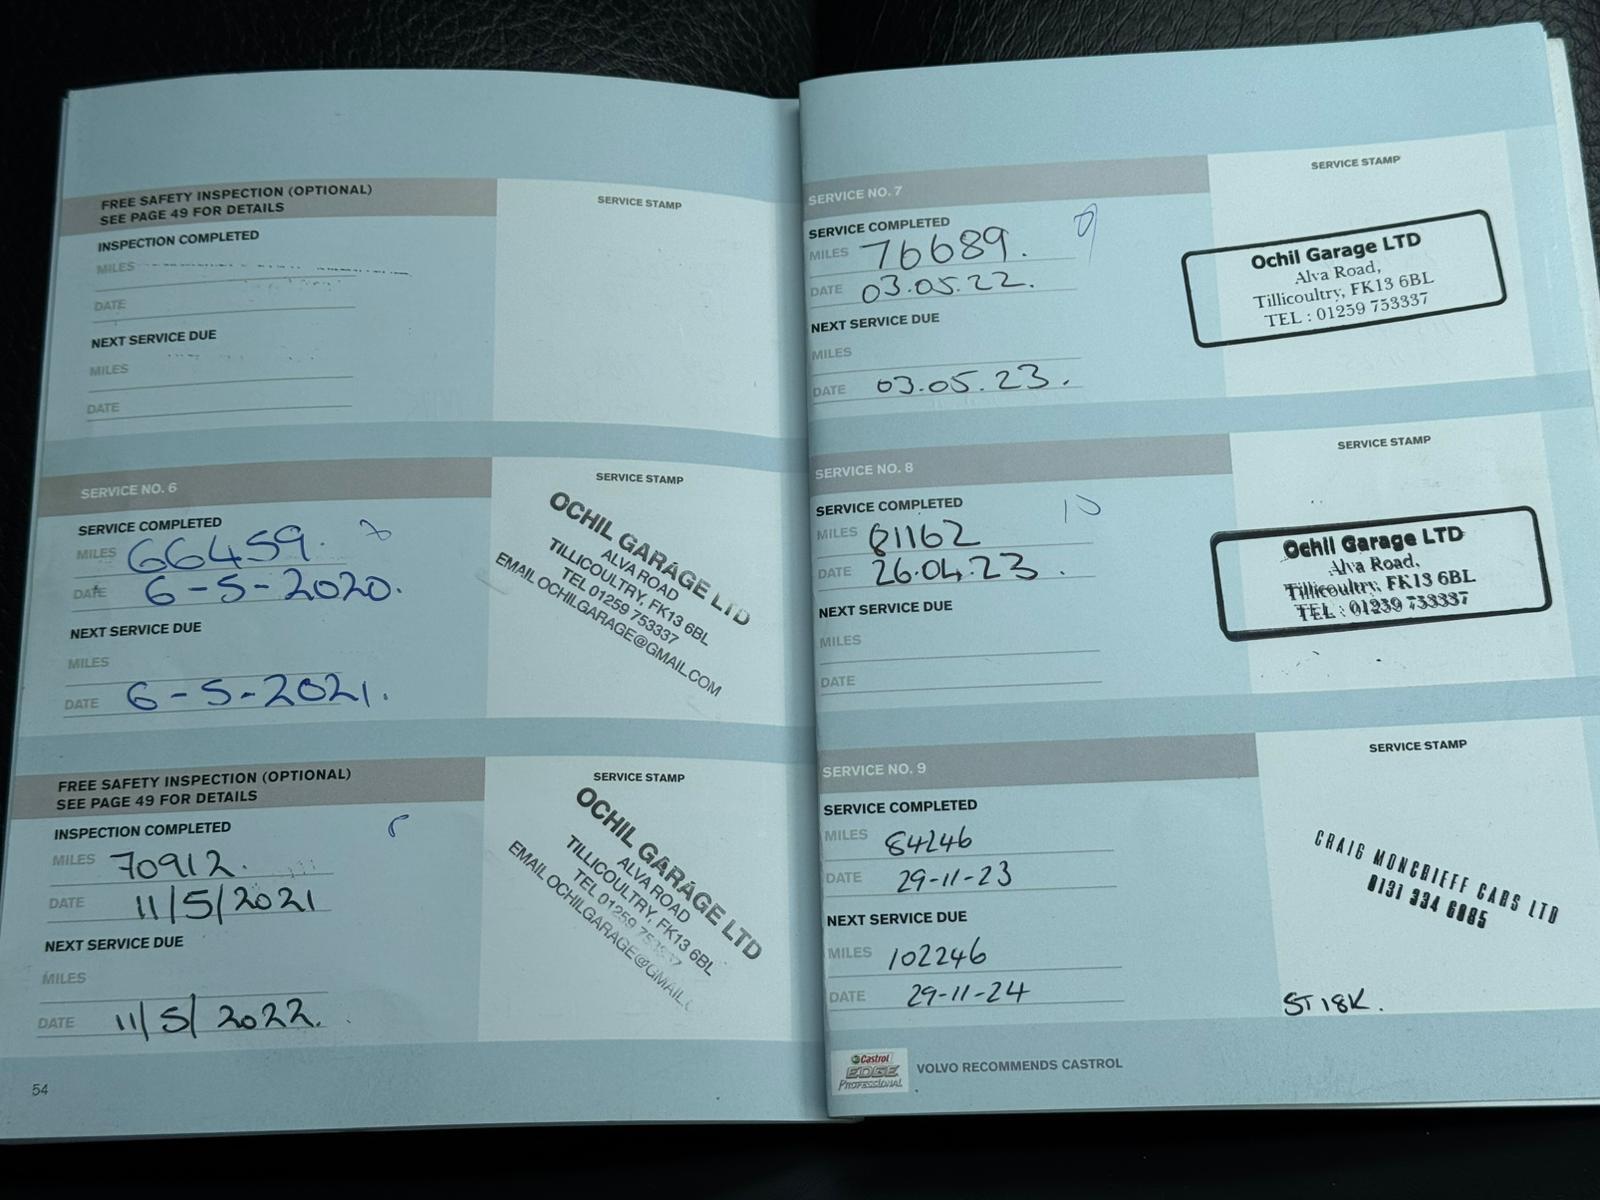 FREE SAFETY INSPECTION (OPTIONAL)
SEE PAGE 49 FOR DETAILS
INSPECTION COMPLETED
MILES
DATE
NEXT SERVICE DUE
MILES
DATE
SERVICE STAMP
SERVICE NO. 6
SERVICE COMPLETED
MILES 66459.
DATE 6-5-2020.
NEXT SERVICE DUE
MILES
DATE 6-5-2021.
SERVICE STAMP
OCHIL GARAGE LTD
ALVA ROAD
TILLICOULTRY, FK13 6BL
TEL 01259 753337
EMAIL OCHILGARAGE@GMAIL.COM
FREE SAFETY INSPECTION (OPTIONAL)
SEE PAGE 49 FOR DETAILS
INSPECTION COMPLETED
MILES 70912.
DATE 11/5/2021
NEXT SERVICE DUE
MILES
DATE 11/5/2022.
SERVICE STAMP
OCHIL GARAGE LTD
ALVA ROAD
TILLICOULTRY, FK13 6BL
TEL 01259
EMAIL OCHILGARAGE@GMAIL.
54
SERVICE NO. 7
SERVICE COMPLETED
MILES 76689. 9
DATE 03.05.22.
NEXT SERVICE DUE
MILES
DATE 03.05.23.
SERVICE STAMP
Ochil Garage LTD
Alva Road,
Tillicoultry, FK13 6BL
TEL : 01259 753337
SERVICE NO. 8
SERVICE COMPLETED
MILES 81162 10
DATE 26.04.23.
NEXT SERVICE DUE
MILES
DATE
SERVICE STAMP
Ochil Garage LTD
Alva Road,
Tillicoultry, FK13 6BL
TEL : 01259 753337
SERVICE NO. 9
SERVICE COMPLETED
MILES 84246
DATE 29-11-23
NEXT SERVICE DUE
MILES 102246
DATE 29-11-24
SERVICE STAMP
CRAIG MONCRIEFF CARS LTD
0131 334 6085
ST 18K.
Castrol
EDGE
PROFESSIONAL
VOLVO RECOMMENDS CASTROL